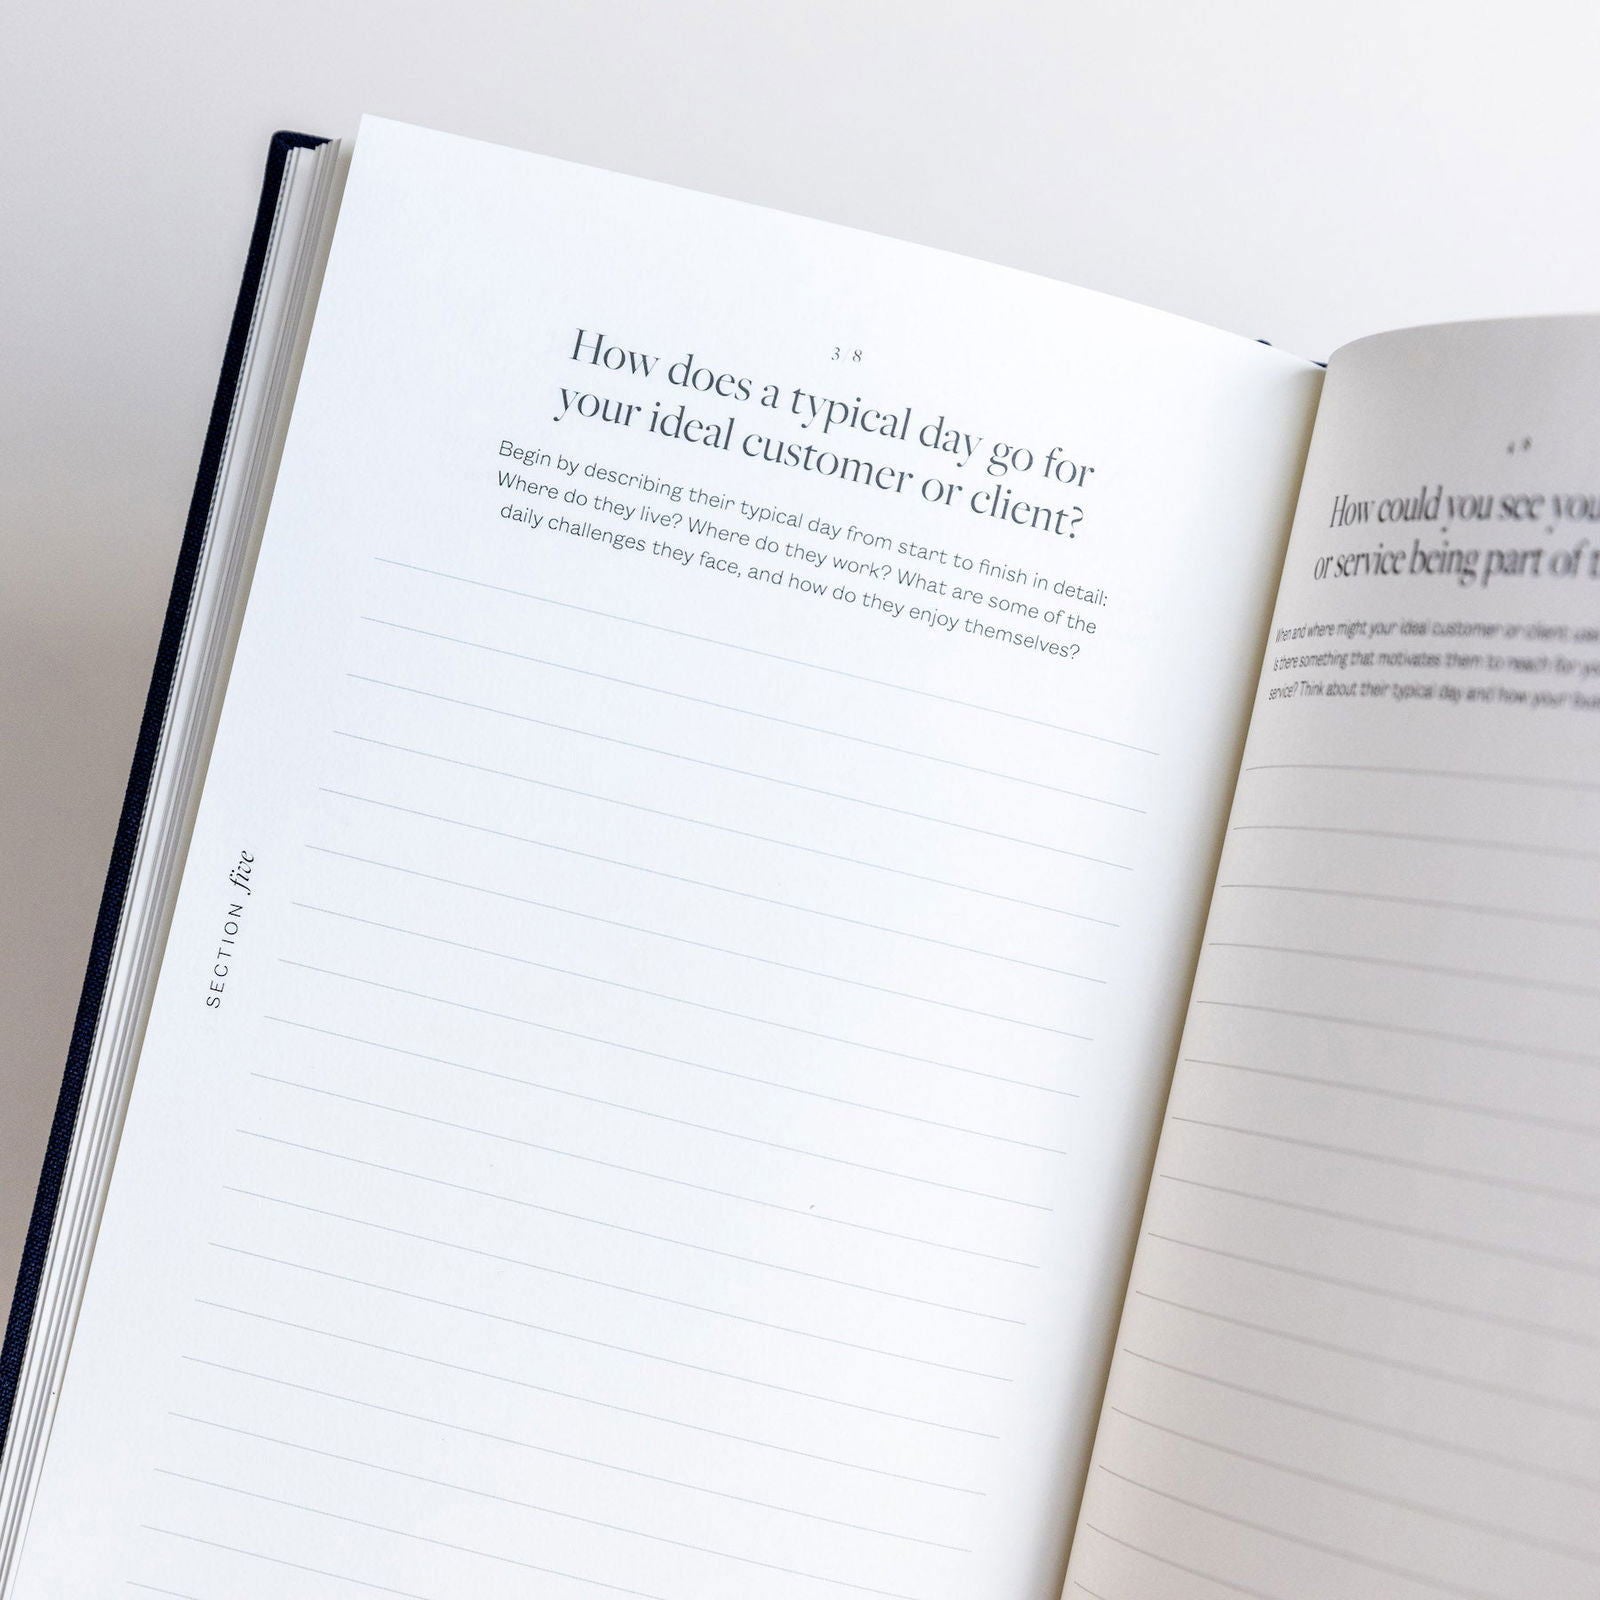 3/8
How does a typical day go for
your ideal customer or client?
Begin by describing their typical day from start to finish in detail:
Where do they live? Where do they work? What are some of the
daily challenges they face, and how do they enjoy themselves?
SECTION five
4/8
How could you see you
or service being part of
When and where might your ideal customer or client use
Is there something that motivates them to reach for
service? Think about their typical day and how your